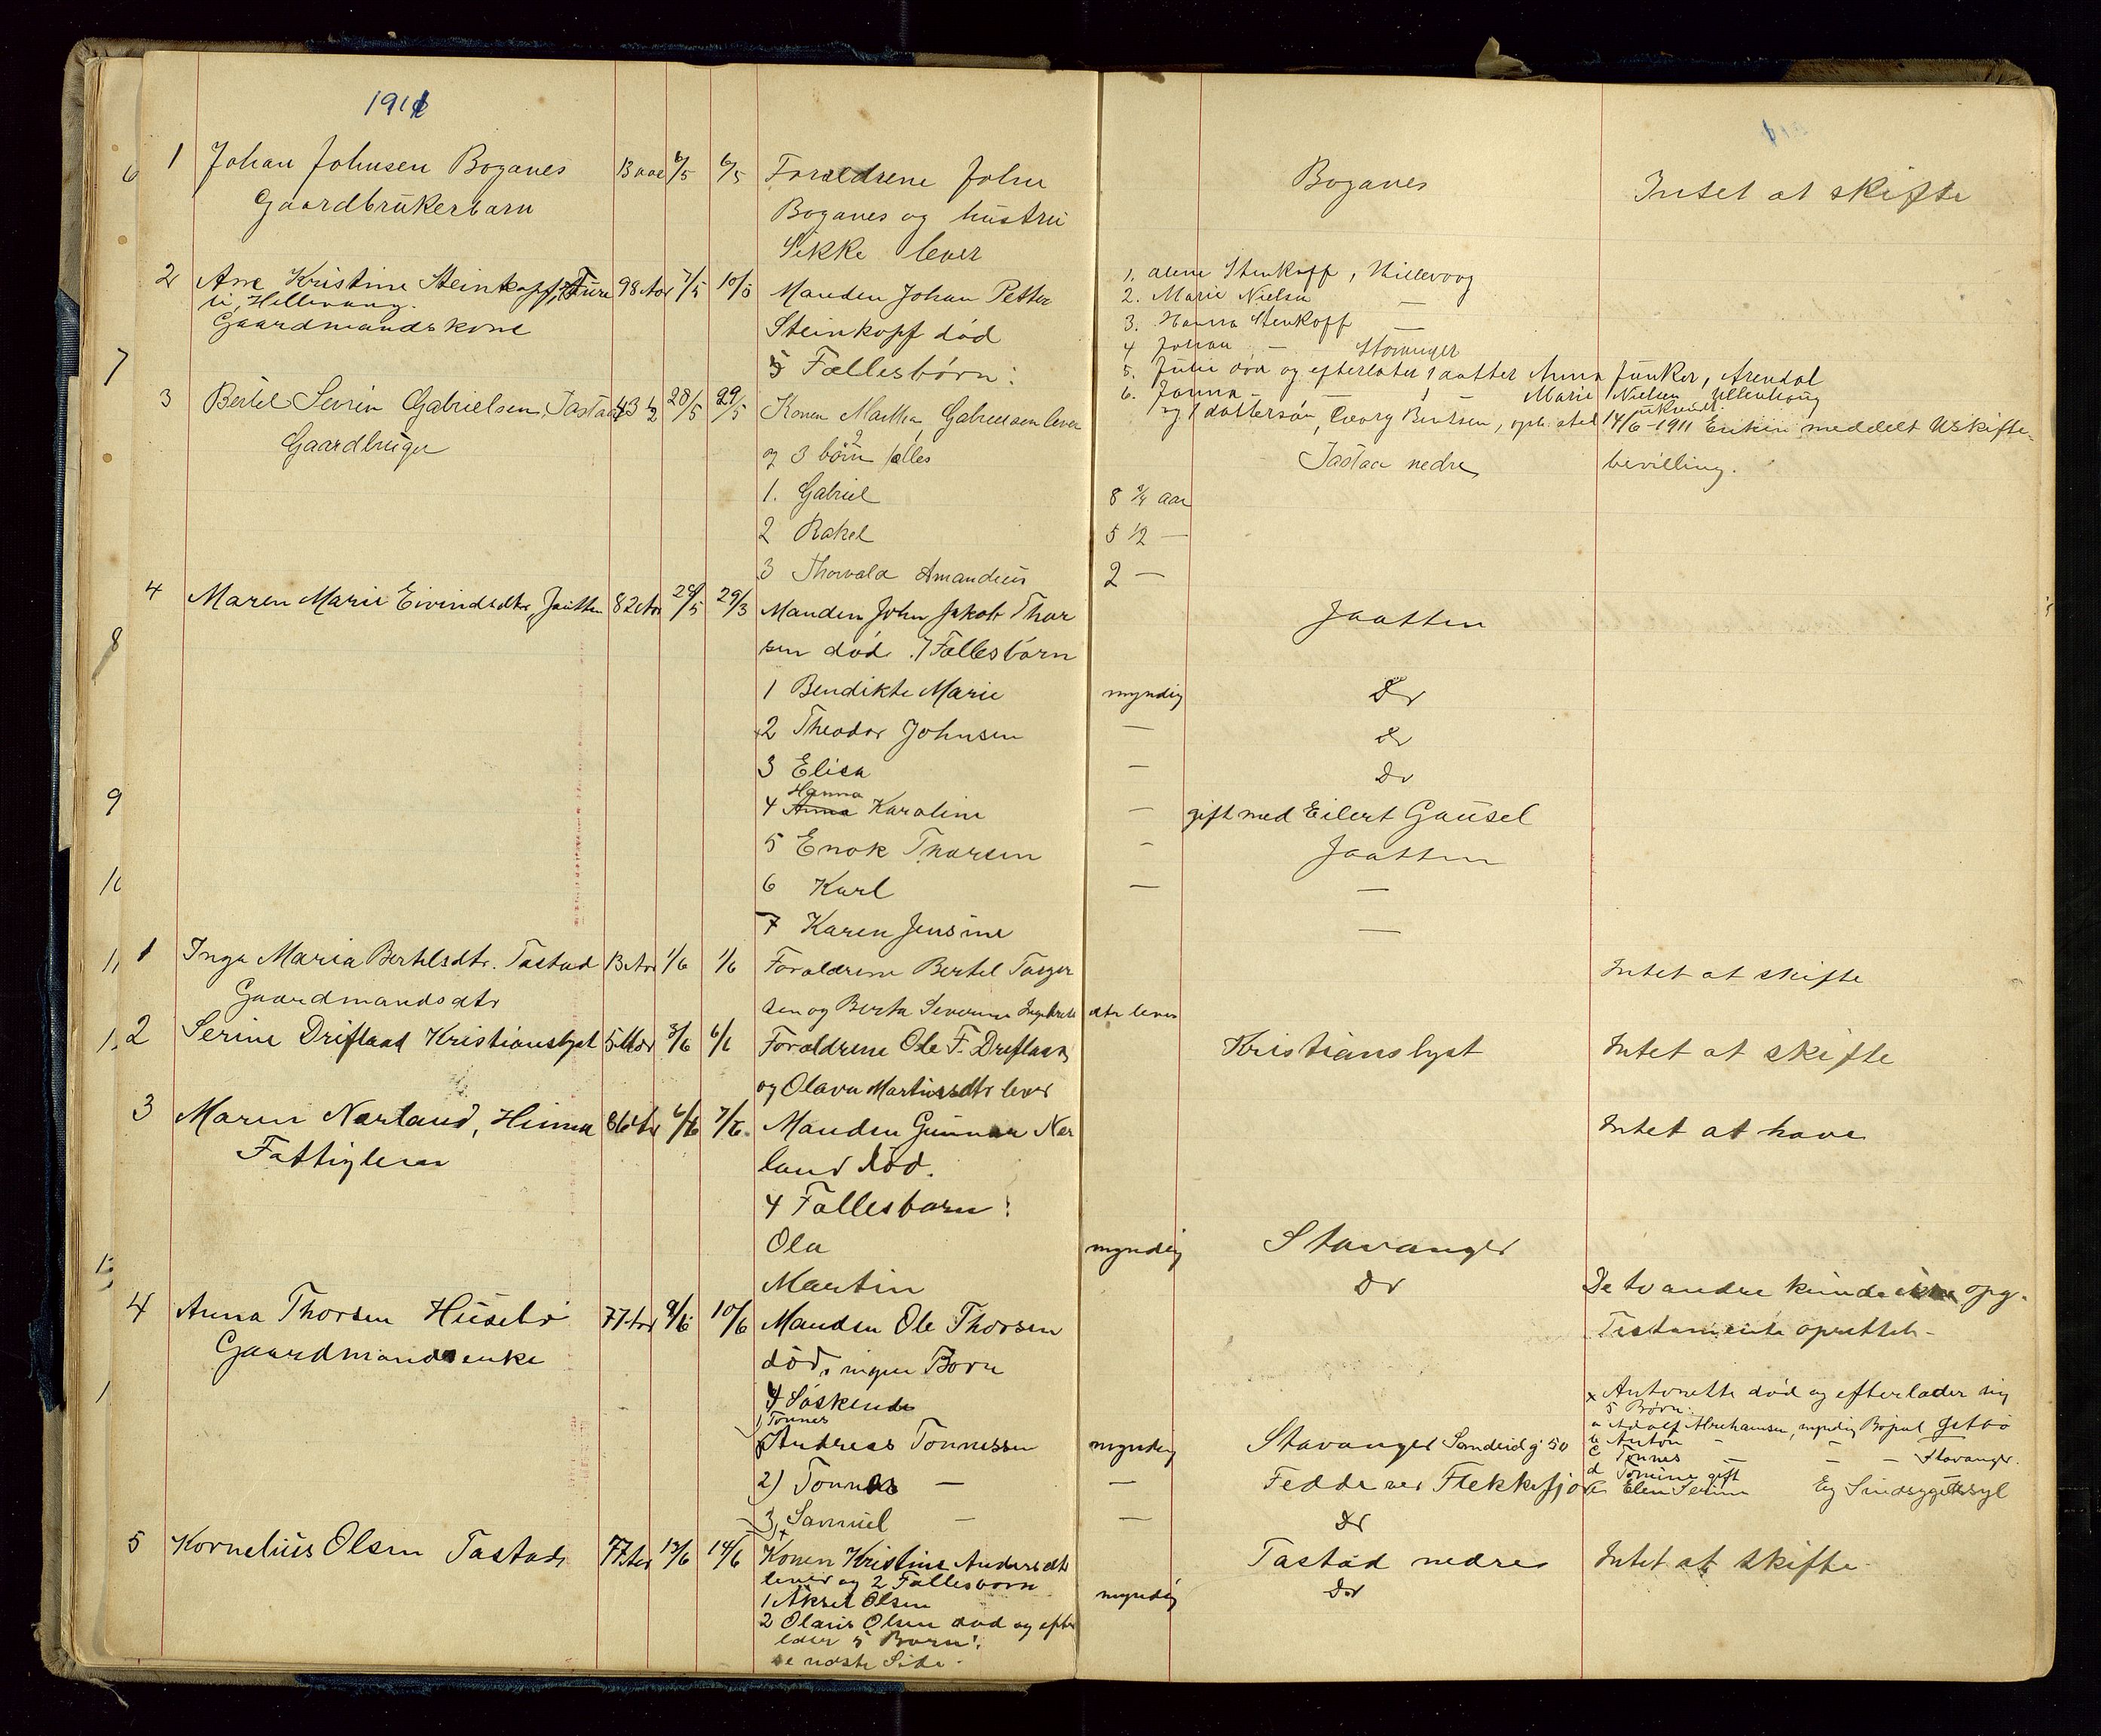 1911
6 1 Johan Johnsen Boganes 13 aar 6/5 6/5 Forældrene John Boganes Intet at skifte
Gaardbrukerbarn Boganes og hustru
Sikke lever
2 Ane Kristine Steinkopff, 98 Aar 7/5 10/5 Manden Johan Petter 1. Stenkoff, Hillevaag
Hillevaag. 2. Marie Nielsen —
Gaardmandskone Steinkopf død 3. Hanna Stenkoff —
4 Johan — Stavanger
7 5 Fællesbørn: 5. Julie død og efterlater 1 datter Anna Junker, Arendal
6. Janna — Marie Nielsen Ullenhaug
3 Bertel Sevrin Gabrielsen, Tastad 43 1/2 28/5 29/5 Konen Martha Gabrielsen lever og 1 dattersøn, Georg Bentsen, 14/6-1911 Enken meddelt Uskifte-
Gaardbruger og 3 børn fælles Tastad nedre bevilling.
1. Gabriel 8 3/4 aar
2 Rakel 5 1/2 —
3 Thorvald Amandius 2 —
4 Maren Marie Eivindsdtr, Jaatten 82 Aar 29/3 Manden John Jakob Thor Jaatten
8 sen død. 7 Fællesbørn
1 Bendikte Marie myndig Do
2 Theodor Johnsen — Do
3 Elisa — Do
Hanna
9 4 Anna Karoline — gift med Eilert Gausel
5 Enok Thorsen - Jaatten
10 6 Karl — —
7 Karen Jensine —
11 1 Inga Maria Bertelsdtr. Tastad 13 Aar 1/6 1/6 Forældrene Bertel Torger Intet at skifte
Gaardmandsdtr sen og Berta Severine dtr lever
2 Serine Drifland Kristianslyst 3/6 6/6 Forældrene Ole F. Drifland Kristianslyst Intet at skifte
og Olava Martinsdtr lever
3 Maren Nærland, Hinna 86 Aar 6/6 7/6 Manden Gunnar Nær Intet at have
Fattiglem land død.
4 Fællesbørn:
Ola myndig Stavanger
Martin Do De to andre kunde ikke opg.
4 Anna Thorsen Husebø 77 Aar 9/6 10/6 Manden Ole Thorsen Testamente oprettet.
Gaardmandsenke død, ingen Børn
4 Søskende x Antonette død og efterlader sig
1) Tonnes 5 Børn:
Andreas Tonnessen myndig Stavanger Sandeid g 50 a Adolf Abrahamsen, myndig Bopæl Jetbø
b Anton — —
2) Tonnes — — Fedde ved Flekkefjord c Tonnes — — Stavanger.
d Tomine gift
3, Samuel — — Do e Elen Serine Eg Sindsygeasyl
5 Kornelius Olsen Tastad 77 Aar 14/6 Konen Kristine Andersdtr Tastad nedre Intet at skifte.
lever og 2 Fællesbørn
1 Aksel Olsen myndig Do
2 Olaus Olsen død og efter
lader 5 Børn:
se næste Side.